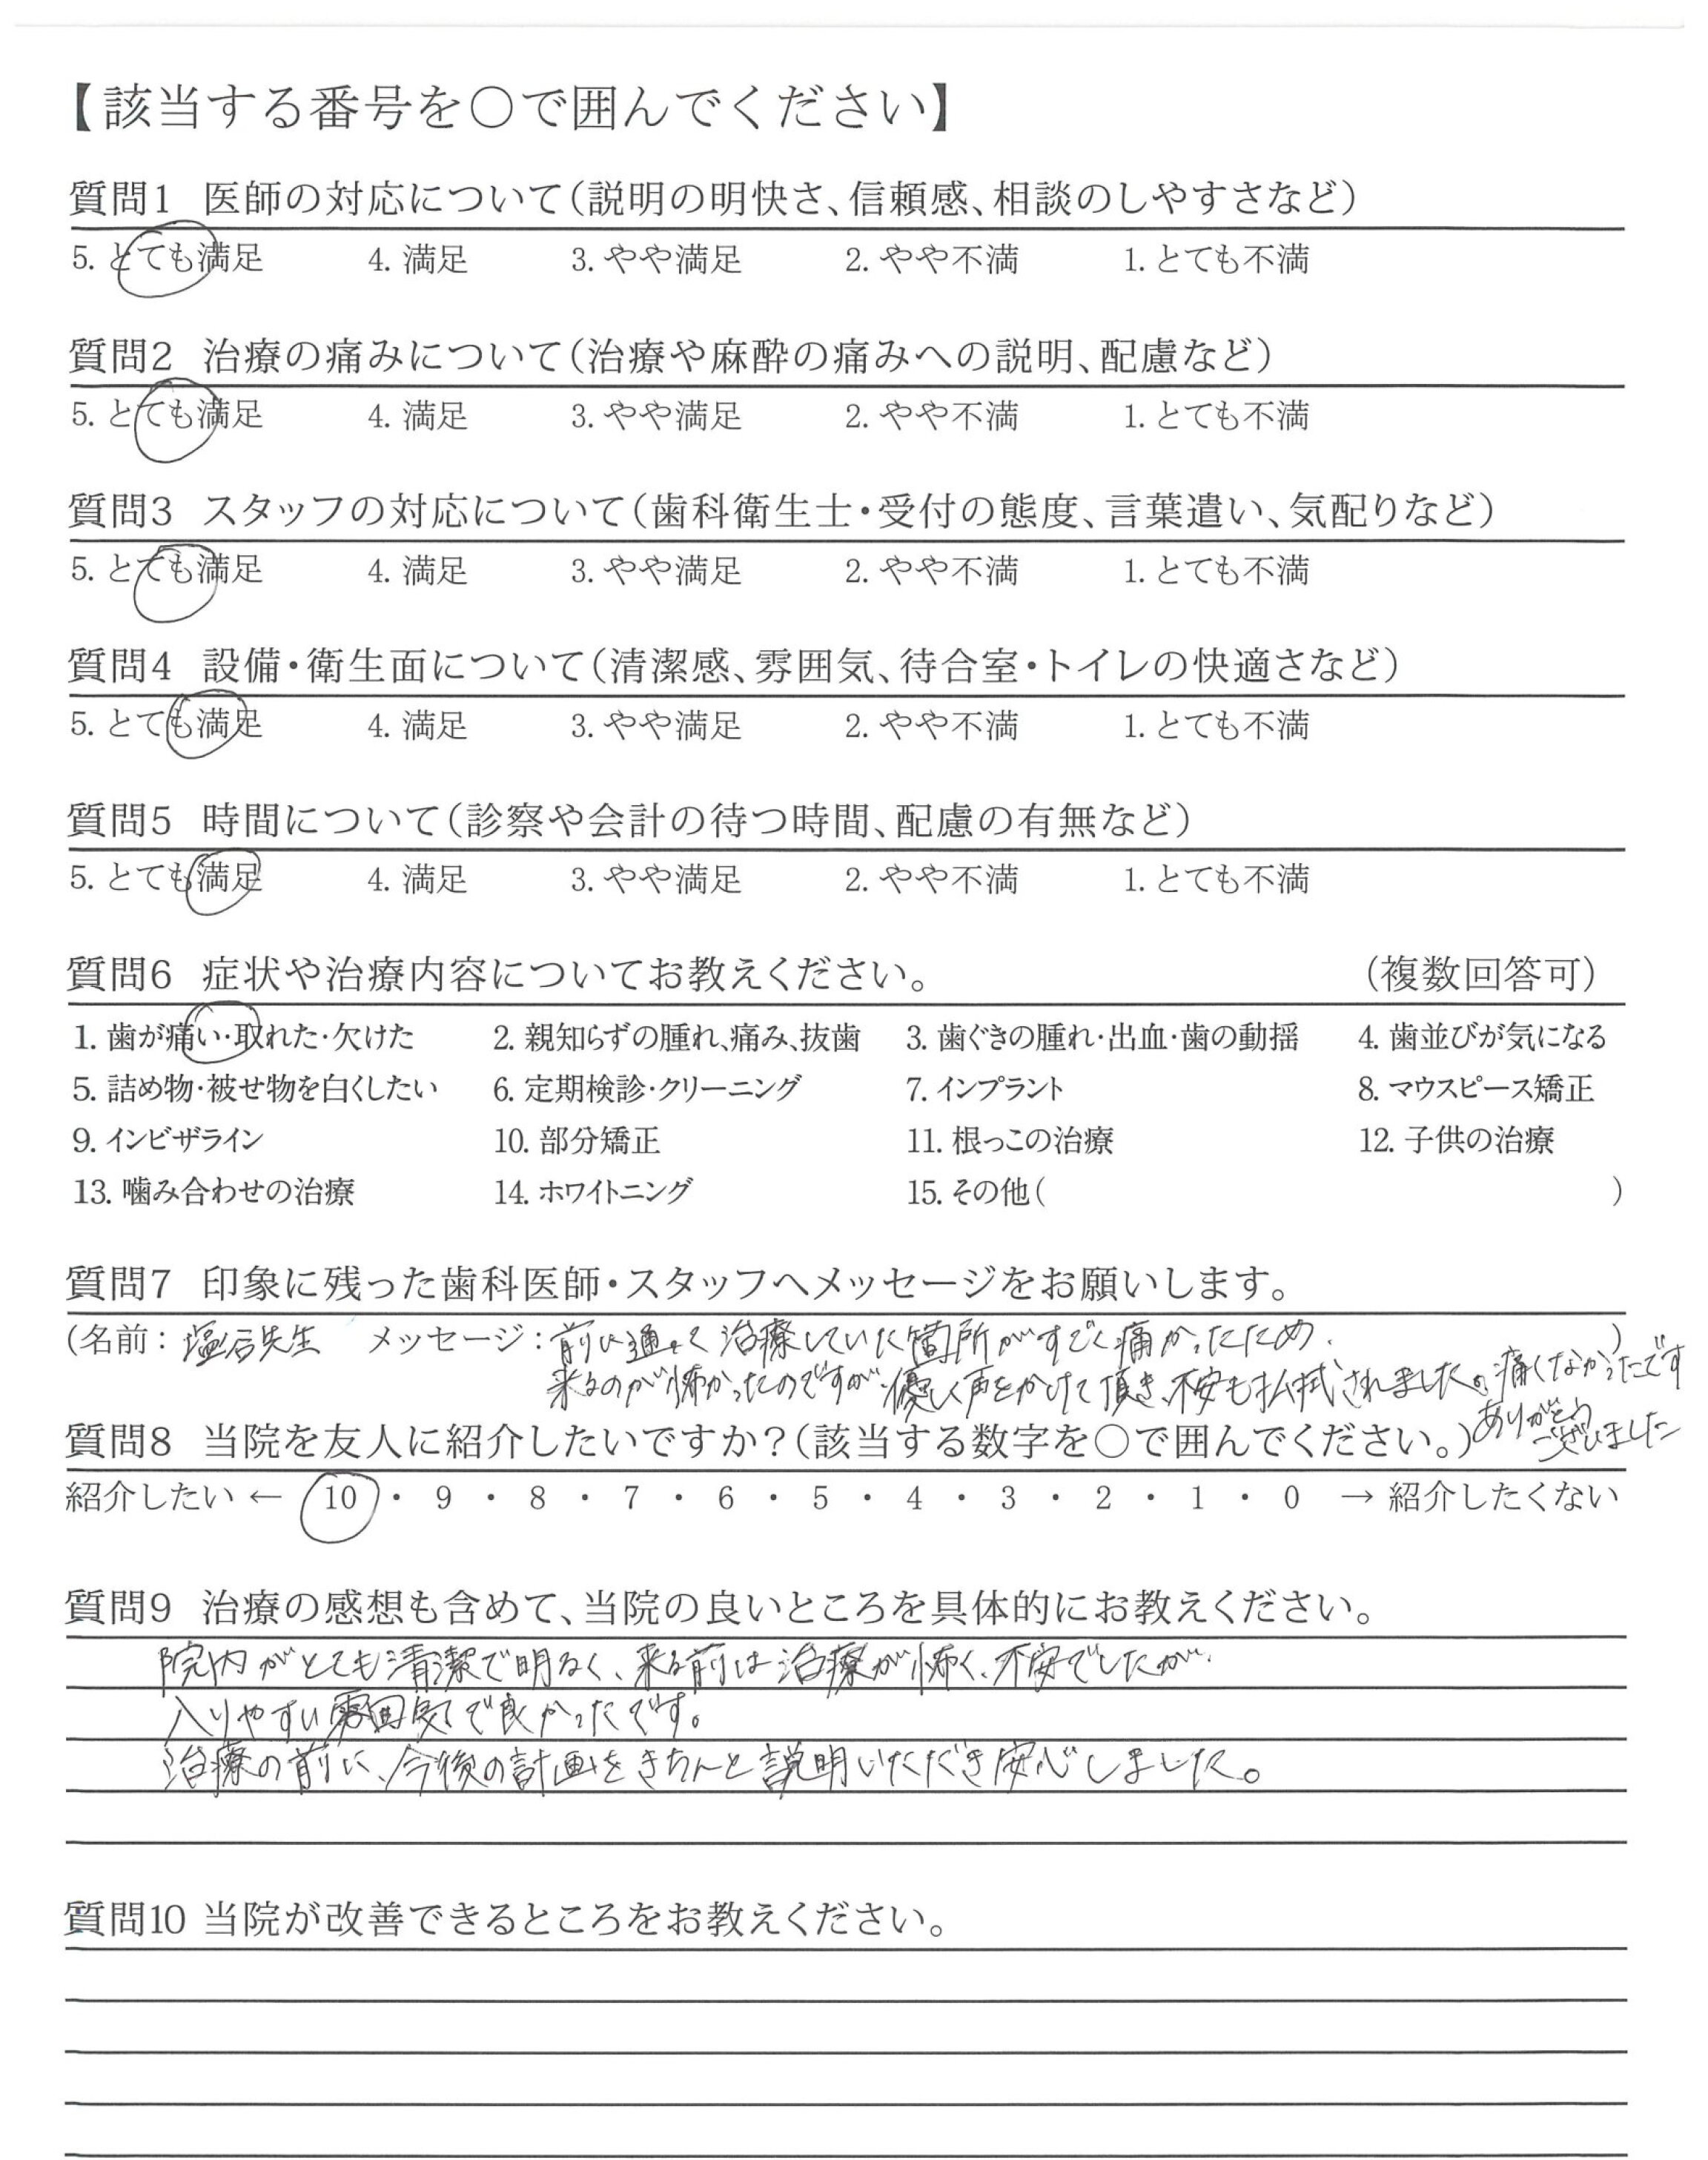 【該当する番号を○で囲んでください】
質問1 医師の対応について(説明の明快さ、信頼感、相談のしやすさなど)
5. とても満足 4. 満足 3. やや満足 2. やや不満 1. とても不満
質問2 治療の痛みについて(治療や麻酔の痛みへの説明、配慮など)
5. とても満足 4. 満足 3. やや満足 2. やや不満 1. とても不満
質問3 スタッフの対応について(歯科衛生士・受付の態度、言葉遣い、気配りなど)
5. とても満足 4. 満足 3. やや満足 2. やや不満 1. とても不満
質問4 設備・衛生面について(清潔感、雰囲気、待合室・トイレの快適さなど)
5. とても満足 4. 満足 3. やや満足 2. やや不満 1. とても不満
質問5 時間について(診察や会計の待つ時間、配慮の有無など)
5. とても満足 4. 満足 3. やや満足 2. やや不満 1. とても不満
質問6 症状や治療内容についてお教えください。 (複数回答可)
1. 歯が痛い・取れた・欠けた 2. 親知らずの腫れ、痛み、抜歯 3. 歯ぐきの腫れ・出血・歯の動揺 4. 歯並びが気になる
5. 詰め物・被せ物を白くしたい 6. 定期検診・クリーニング 7. インプラント 8. マウスピース矯正
9. インビザライン 10. 部分矯正 11. 根っこの治療 12. 子供の治療
13. 噛み合わせの治療 14. ホワイトニング 15. その他( )
質問7 印象に残った歯科医師・スタッフへメッセージをお願いします。
(名前: 塩谷先生 メッセージ: 前に通って治療していた箇所がすごく痛かったため、 )
来るのが怖かったのですが、優しく声をかけて頂き、不安も払拭されました。痛くなかったです
ありがとう
ございました
質問8 当院を友人に紹介したいですか?(該当する数字を○で囲んでください。)
紹介したい ← 10 ・ 9 ・ 8 ・ 7 ・ 6 ・ 5 ・ 4 ・ 3 ・ 2 ・ 1 ・ 0 → 紹介したくない
質問9 治療の感想も含めて、当院の良いところを具体的にお教えください。
院内がとても清潔で明るく、来る前は治療が怖く、不安でしたが、
入りやすい雰囲気で良かったです。
治療の前に、今後の計画をきちんと説明いただき安心しました。
質問10 当院が改善できるところをお教えください。